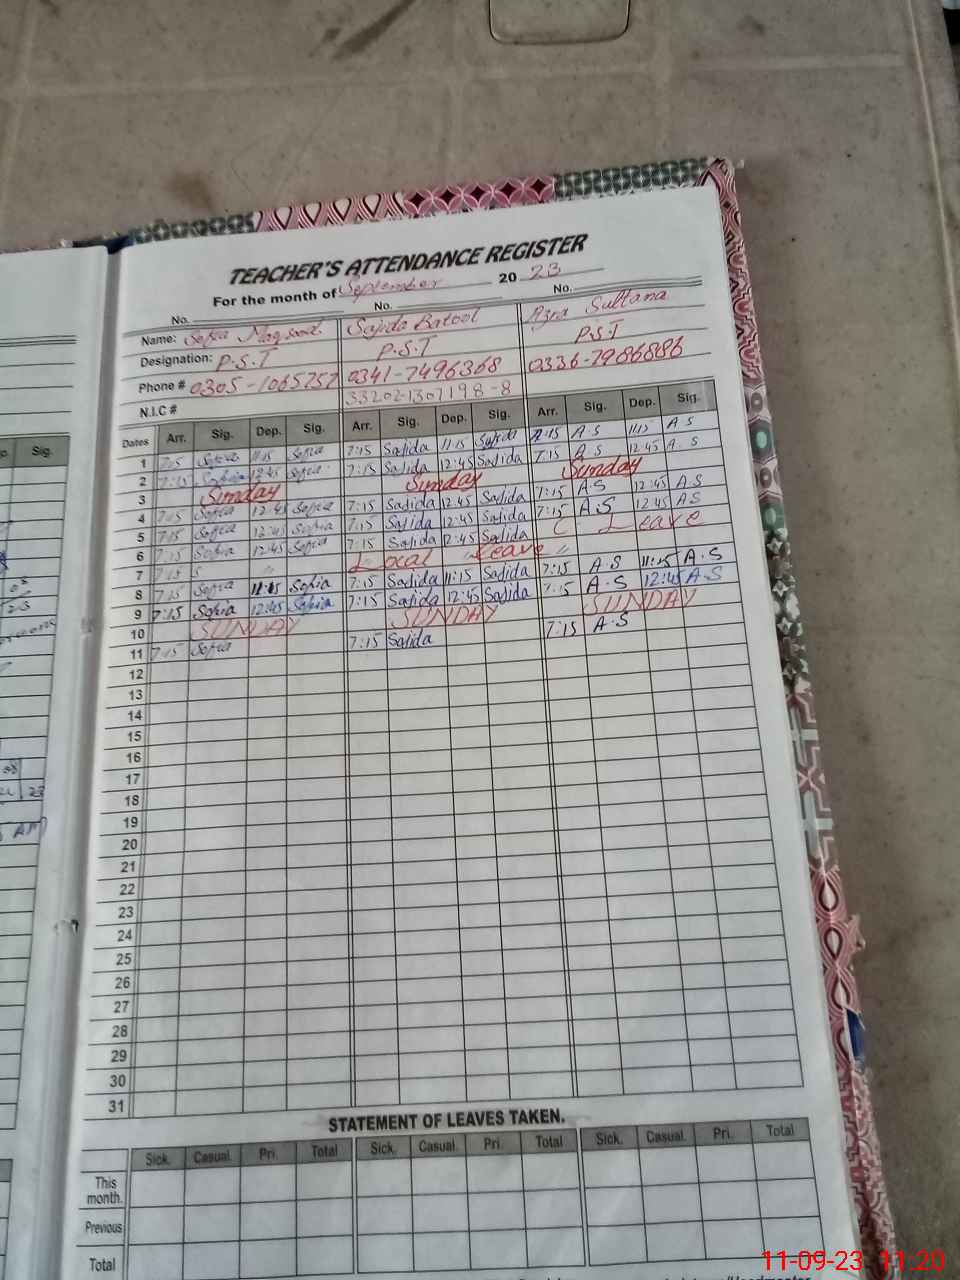 TEACHER'S ATTENDANCE REGISTER
For the month of September 2023
No. No. No.
Name: Sofia Maqsood Sajida Batool Azra Sultana
Designation: P.S.T P.S.T P.S.T
Phone # 0305-1065757 0341-7496368 0336-7986886
N.I.C # 33202-1307198-8
Dates Arr. Sig. Dep. Sig. Arr. Sig. Dep. Sig. Arr. Sig. Dep. Sig.
1 7:15 Sofia 11:15 Sofia 7:15 Sajida 11:15 Sajida 7:15 A S 11:15 A S
2 7:15 Sofia 12:45 Sofia 7:15 Sajida 12:45 Sajida 7:15 A S 12:45 A. S
3 Sunday Sunday Sunday
4 7:15 Sofia 12:45 Sofia 7:15 Sajida 12:45 Sajida 7:15 A S 12:45 A S
5 7:15 Sofia 12:45 Sofia 7:15 Sajida 12:45 Sajida 7:15 A S 12:45 A S
6 7:15 Sofia 12:45 Sofia 7:15 Sajida 12:45 Sajida C Leave
7 7:15 S Local Leave
8 7:15 Sofia 11:15 Sofia 7:15 Sajida 11:15 Sajida 7:15 A.S 11:15 A.S
9 7:15 Sofia 12:45 Sofia 7:15 Sajida 12:45 Sajida 7:15 A.S 12:45 A.S
10 SUNDAY SUNDAY SUNDAY
11 7:15 Sofia 7:15 Sajida 7:15 A.S
12
13
14
15
16
17
18
19
20
21
22
23
24
25
26
27
28
29
30
31
STATEMENT OF LEAVES TAKEN.
Sick. Casual. Pri. Total Sick. Casual. Pri. Total Sick. Casual. Pri. Total
This month.
Previous
Total
11-09-23 11:20